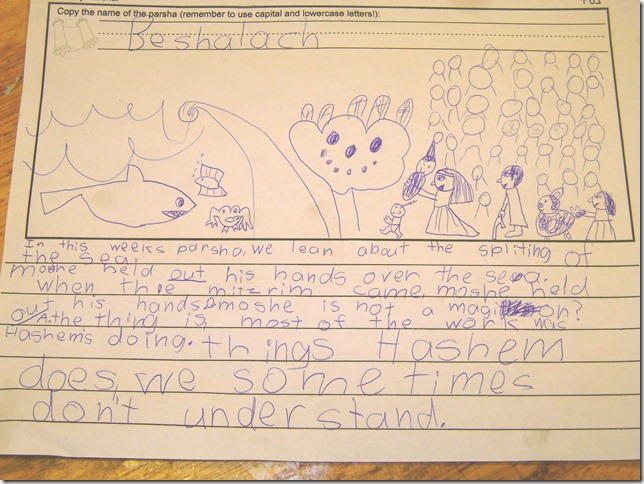 Copy the name of the parsha (remember to use capital and lowercase letters!):
Beshalach
In this weeks parsha, we lean about the spliting of
the sea.
moshe held out his hands over the sea.
when the mitzrim came, moshe held
out his hands Q moshe is not a magi on?
A. the thing is, most of the work was
Hashem's doing. things Hashem
does, we sometimes
don't understand.